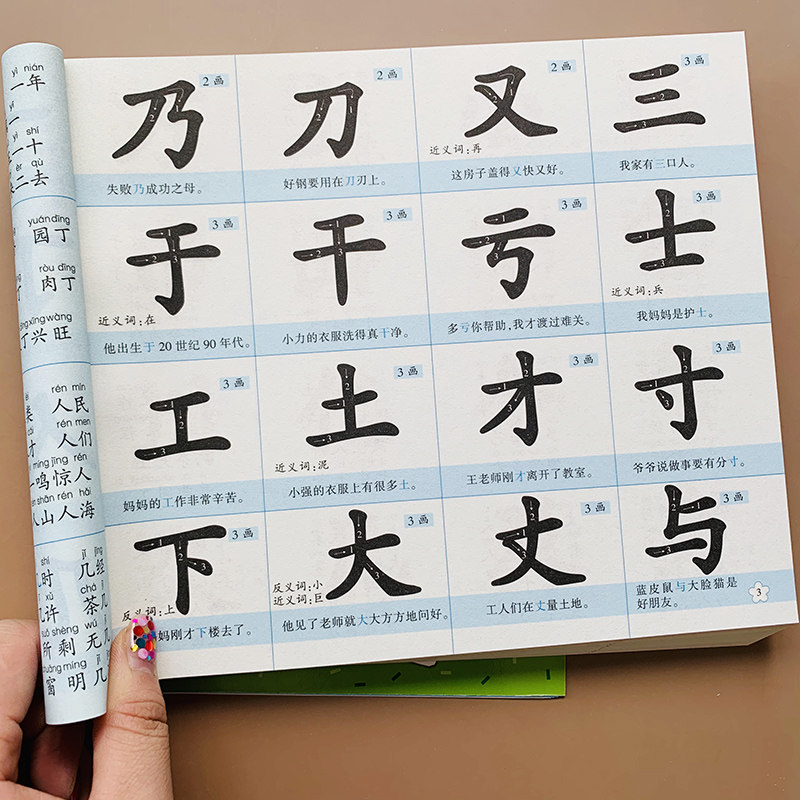 yì nián
一年
yī
一
yī shí
一十
èr qù
二去
yuán dīng
园丁
ròu dīng
肉丁
xīng wàng
丁兴旺
rén mín
人民
rén men
人们
míng jīng rén
一鸣惊人
shān rén hǎi
人山人海
shí
时
jǐ jīng
几经
xǔ
许
chá jī
茶几
suǒ shèng
所剩
wú jǐ
无几
chuāng míng
窗明
几
2画
乃
失败乃成功之母。
2画
刀
好钢要用在刀刃上。
2画
又
近义词:再
这房子盖得又快又好。
3画
三
我家有三口人。
3画
于
近义词:在
他出生于20世纪90年代。
3画
干
小力的衣服洗得真干净。
3画
亏
多亏你帮助,我才渡过难关。
3画
士
近义词:兵
我妈妈是护士。
3画
工
妈妈的工作非常辛苦。
3画
土
近义词:泥
小强的衣服上有很多土。
3画
才
王老师刚才离开了教室。
3画
寸
爷爷说做事要有分寸。
3画
下
反义词:上
妈刚才下楼去了。
3画
大
反义词:小
近义词:巨
他见了老师就大大方方地问好。
3画
丈
工人们在丈量土地。
3画
与
蓝皮鼠与大脸猫是
好朋友。
3